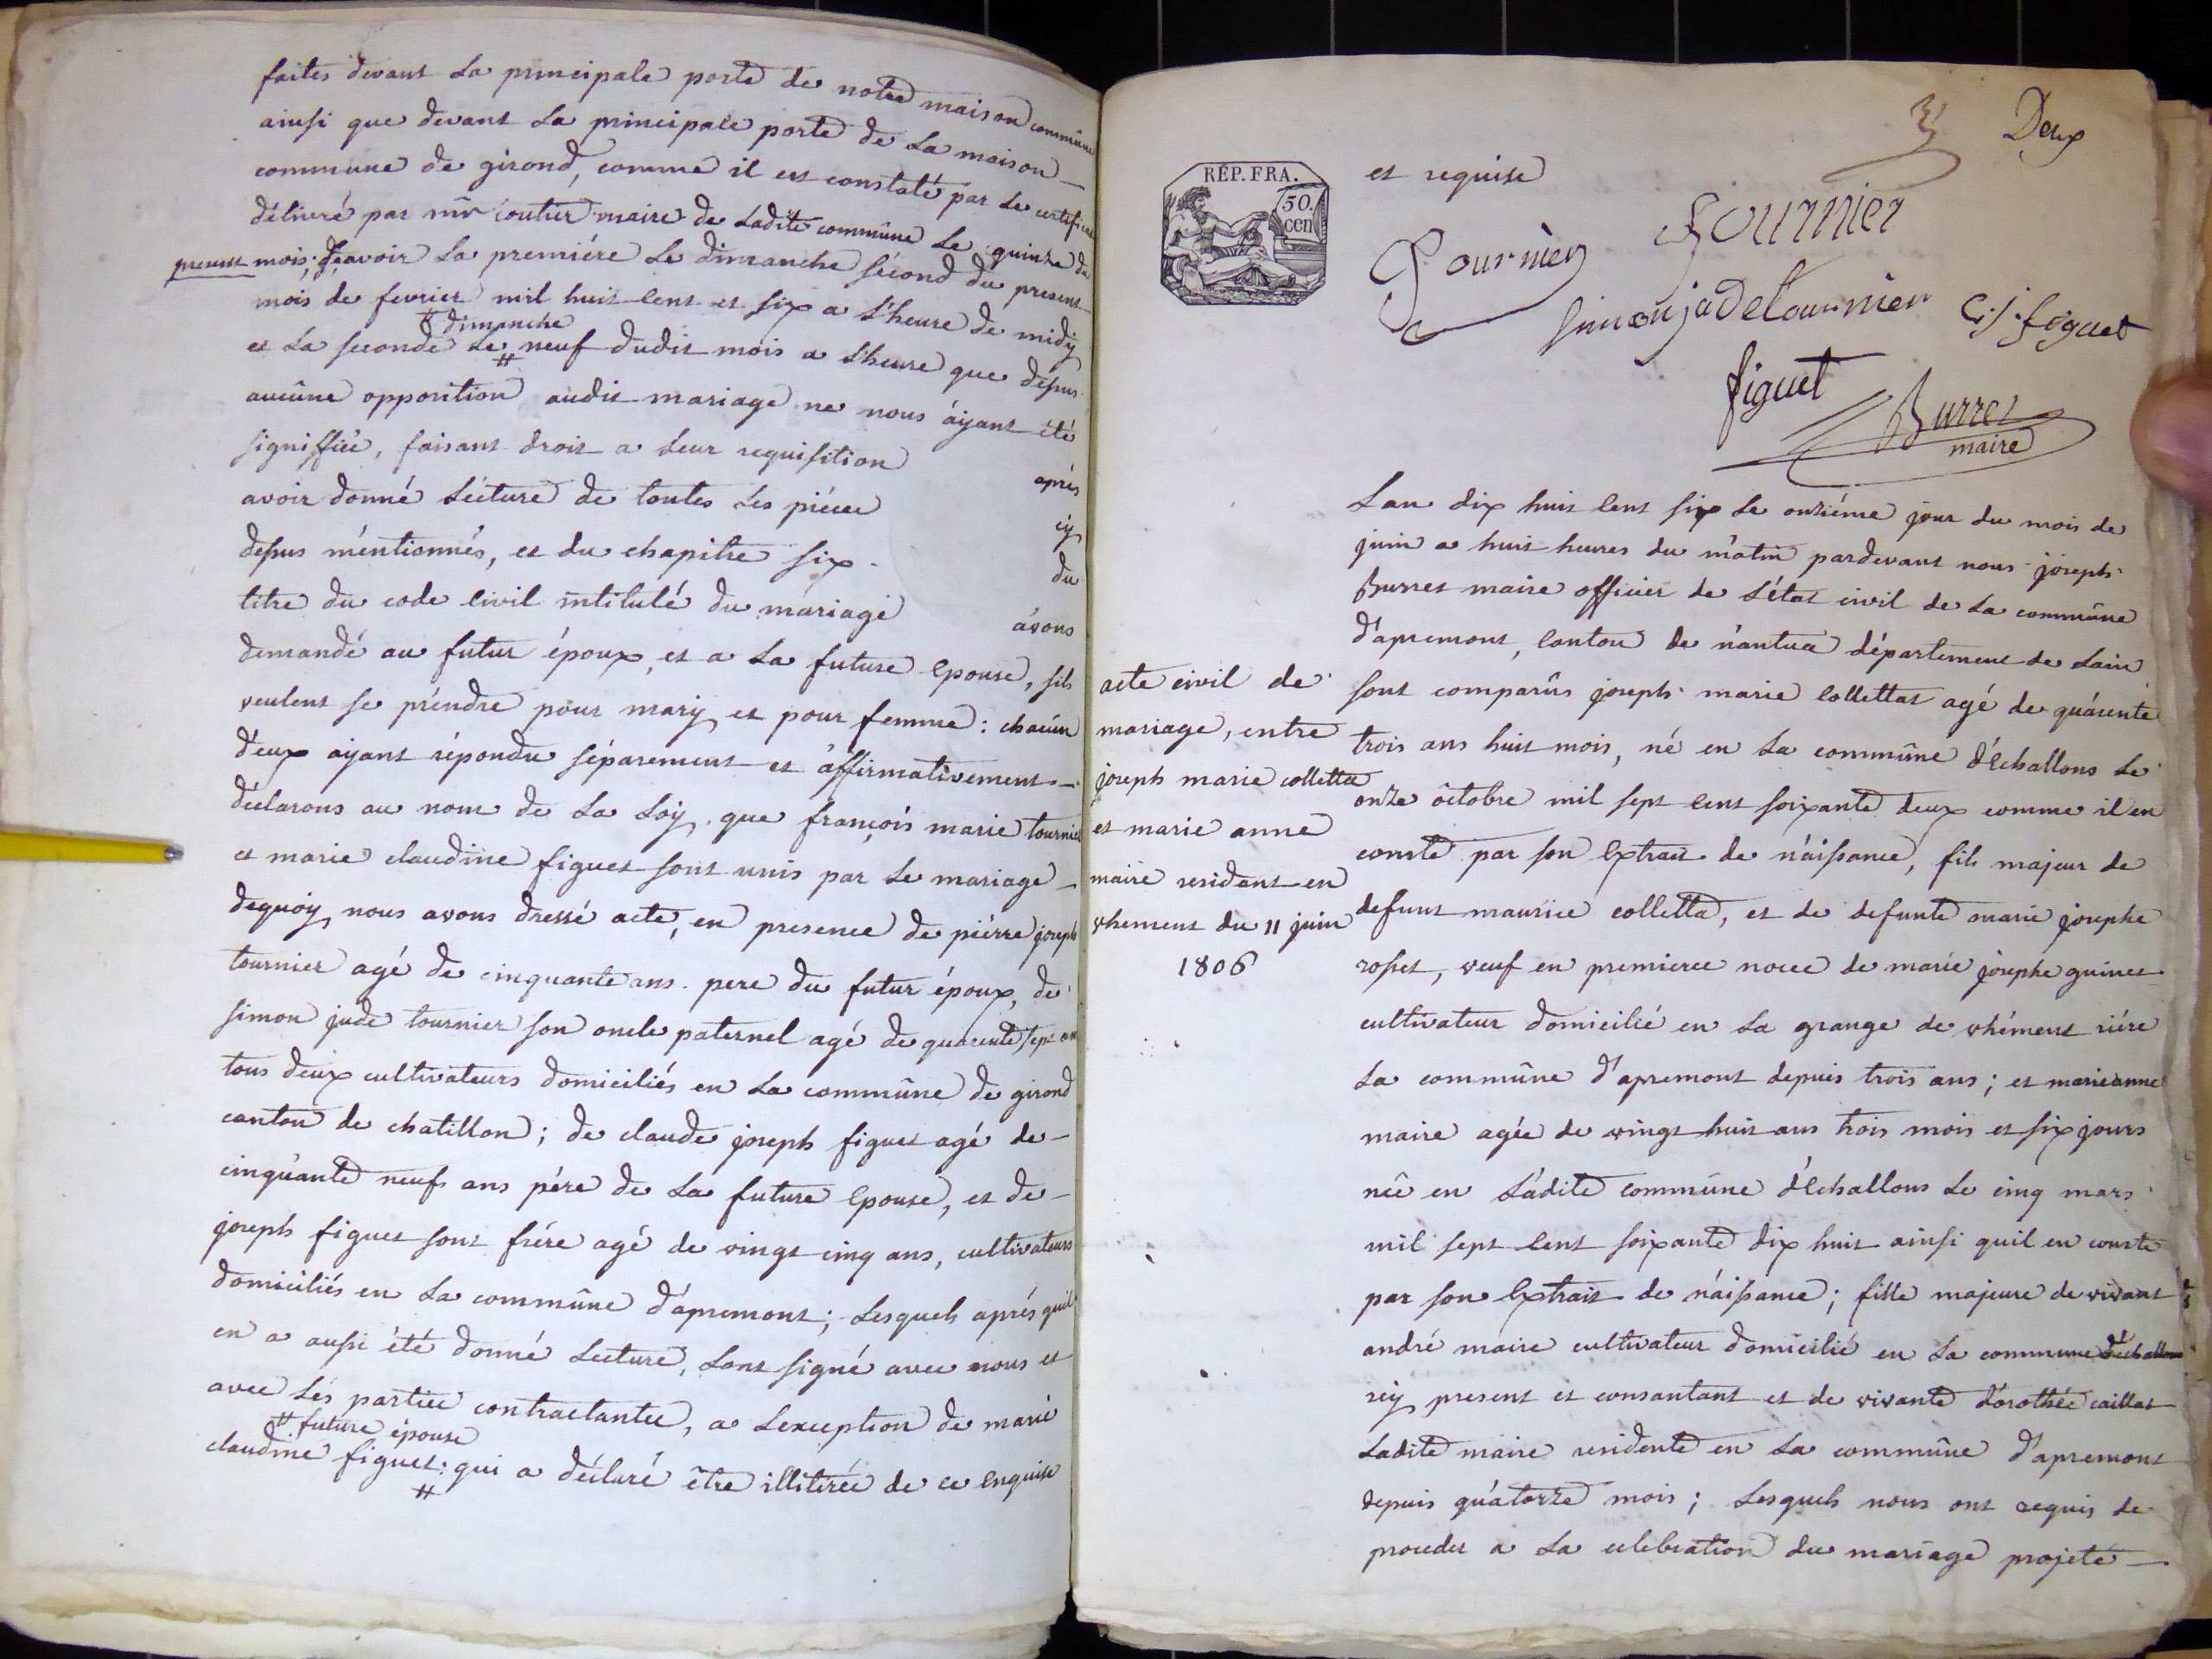 faites devant la principale porte de notre maison commûne
ainsi que devant la principale porte de la maison
commune de girond, comme il est constaté par le certificat
délivré par mr coutur maire de ladite commûne le quinze du
present mois; savoir la premiére le dimanche sécond du present
mois de fevrier mil huit cent et six a l'heure de midÿ
# dimanche
et la seconde le # neuf dudit mois a l'heure que dessus
aucûne opposition audit mariage ne nous áÿant été
signiffiée, faisant droit a leur requisition après
avoir donné lécture de toutes les piéces cÿ
dessus méntionnés, et du chapitre six du
titre du code civil intitulé du máriage ávons
demandé au futur époux, et a la future epouse, sils
veulent se préndre pour marÿ et pour femme: chacun
d'eux aÿant répondu séparement et áffirmativement
déclarons au nom de la loÿ que françois marie tournier
et marie claudine figuet sont unis par le mariage
dequoÿ nous avons dressé acte, en presence de piérre joseph
tournier agé de cinquante ans pere du futur époux, de
simon jude tournier son oncle paternel agé de quarente sept ans
tous deux cultivateurs domiciliés en la commûne de girond
canton de chatillon; de claude joseph figuet agé de
cinquante neufs ans pére de la future epouse, et de
joseph figuet sont frére agé de vingt cinq ans, cultivateurs
domiciliés en la commûne d'ápremont; lesquels aprés quil
en a aussi été donné lecture, lont signé avec nous et
avec lés parties contractantes, a lexception de marie
# future épouse
claudine figuet # qui a déclaré être illitirée de ce enquise
Deux
RÉP. FRA.
50.
cen
et requise
Tournier
Tournier
simon jude tournier
C. j. figuet
figuet
Burret
maire
acte civil de
mariage, entre
joseph marie collettaz
et marie anne
maire residant en
vhement du 11 juin
1806
Lan dix huit cent six le onziéme jour du mois de
juin a huit heures du mátin pardevant nous joseph
Burret maire officier de l'état civil de la commûne
d'apremont, canton de nántua département de lain
sont comparûs joseph marie collettaz agé de quárente
trois ans huit mois, né en la commûne d'échallons le
onze octobre mil sept cent soixante deux comme il en
conste par son extrait de náissance, fils majeur de
defunt maurice colletta, et de defunte marie josephe
rosset, veuf en premieree noces de marie josephe guinet
cultivateur domicilié en la grange de vhément riére
la commûne d'apremont depuis trois ans; et marie anne
maire agée de vingt huit ans trois mois et six jours
née en ládite commûne d'échallons le cinq mars
mil sept cent soixante dix huit ainsi quil en conste
par son extrait de náissance; fille majeure de vivant
andré maire cultivateur domicilié en la commune d'échallons
icÿ present et consantant et de vivante dorothée caillat
Ladite maire residente en la commûne d'apremont
depuis quátorze mois; Lesquels nous ont requis de
proceder a la celebration du mariage projeté